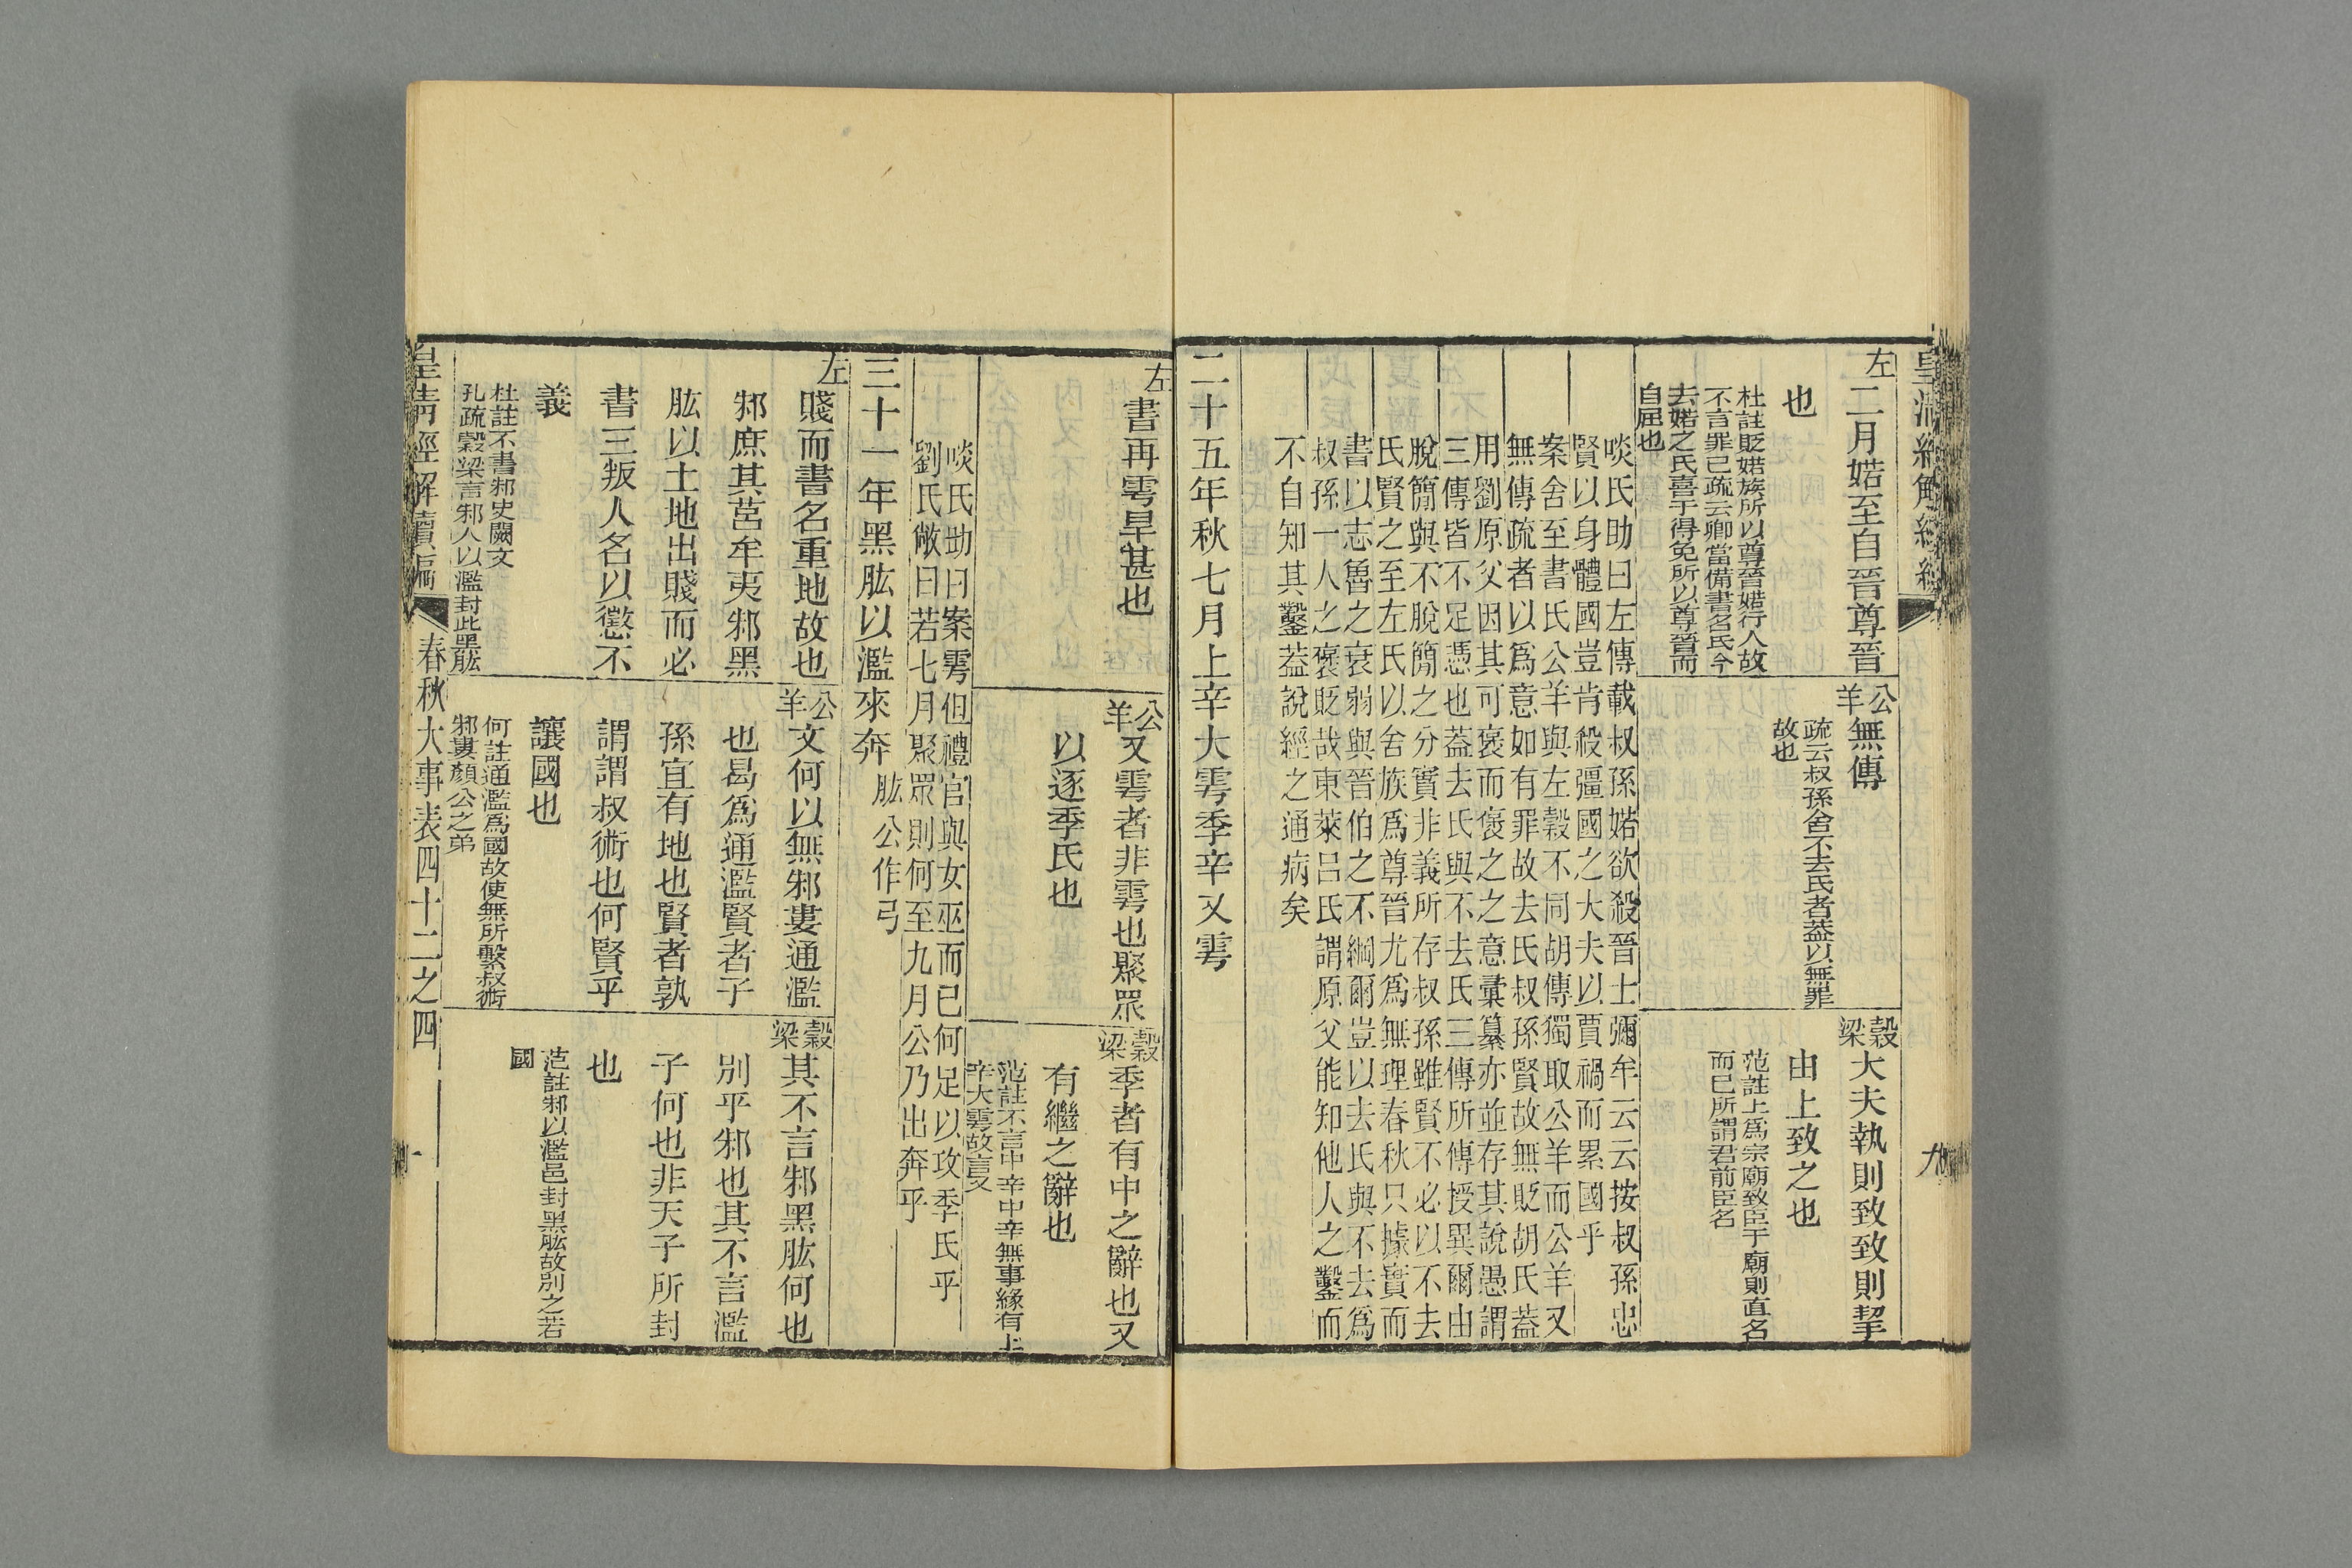 皇清經解續編
九
左
二月婼至自晉尊晉
也
杜註貶婼族所以尊晉婼行人故
不言罪已疏云卿當備書名氏今
去婼之氏喜于得免所以尊晉而
自屈也
公羊
無傳
疏云叔孫舍不去氏者葢以無罪
故也
穀梁
大夫執則致致則挈
由上致之也
范註上爲宗廟致臣于廟則直名
而已所謂君前臣名
啖氏助曰左傳載叔孫婼欲殺晉士彌牟云云按叔孫忠
賢以身體國豈肯殺彊國之大夫以賈禍而累國乎
案舍至書氏公羊與左穀不同胡傳獨取公羊而公羊又
無傳疏者以爲意如有罪故去氏叔孫賢故無貶胡氏葢
用劉原父因其可褒而褒之之意彙纂亦並存其說愚謂
三傳皆不足憑也葢去氏與不去氏三傳所傳授異爾由
脫簡與不脫簡之分實非義所存叔孫雖賢不必以不去
氏賢之至左氏以舍族爲尊晉尤爲無理春秋只據實而
書以志魯之衰弱與晉伯之不綱爾豈以去氏與不去爲
叔孫一人之褒貶哉東萊呂氏謂原父能知他人之鑿而
不自知其鑿葢說經之通病矣
二十五年秋七月上辛大雩季辛又雩
左
書再雩旱甚也
公羊
又雩者非雩也聚眾
以逐季氏也
穀梁
季者有中之辭也又
有繼之辭也
范註不言中辛中辛無事緣有上
辛大雩故言又
啖氏助曰案雩但禮官與女巫而已何足以攻季氏乎
劉氏敞曰若七月聚眾則何至九月公乃出奔乎
三十一年黑肱以濫來奔 肱公作弓
左
賤而書名重地故也
邾庶其莒牟夷邾黑
肱以土地出賤而必
書三叛人名以懲不
義
杜註不書邾史闕文
孔疏穀梁言邾人以濫封此黑肱
公羊
文何以無邾婁通濫
也曷爲通濫賢者子
孫宜有地也賢者孰
謂謂叔術也何賢乎
讓國也
何註通濫爲國故使無所繫叔術
邾婁顏公之弟
穀梁
其不言邾黑肱何也
別乎邾也其不言濫
子何也非天子所封
也
范註邾以濫邑封黑肱故別之若
國
皇清經解續編
春秋大事表四十二之四